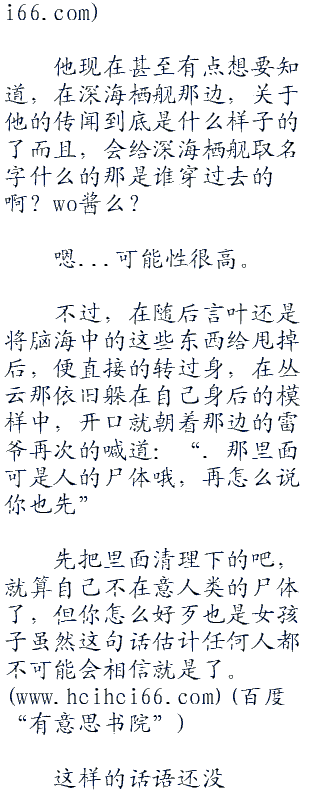 i66.com)
他现在甚至有点想要知
道，在深海栖舰那边，关于
他的传闻到底是什么样子的
了而且，会给深海栖舰取名
字什么的那是谁穿过去的
啊？wo酱么？
嗯...可能性很高。
不过，在随后言叶还是
将脑海中的这些东西给甩掉
后，便直接的转过身，在丛
云那依旧躲在自己身后的模
样中，开口就朝着那边的雷
爷再次的喊道：“. 那里面
可是人的尸体哦，再怎么说
你也先”
先把里面清理下的吧，
就算自己不在意人类的尸体
了，但你怎么好歹也是女孩
子虽然这句话估计任何人都
不可能会相信就是了。
(www.hcihci66.com)(百度
“有意思书院”)
这样的话语还没